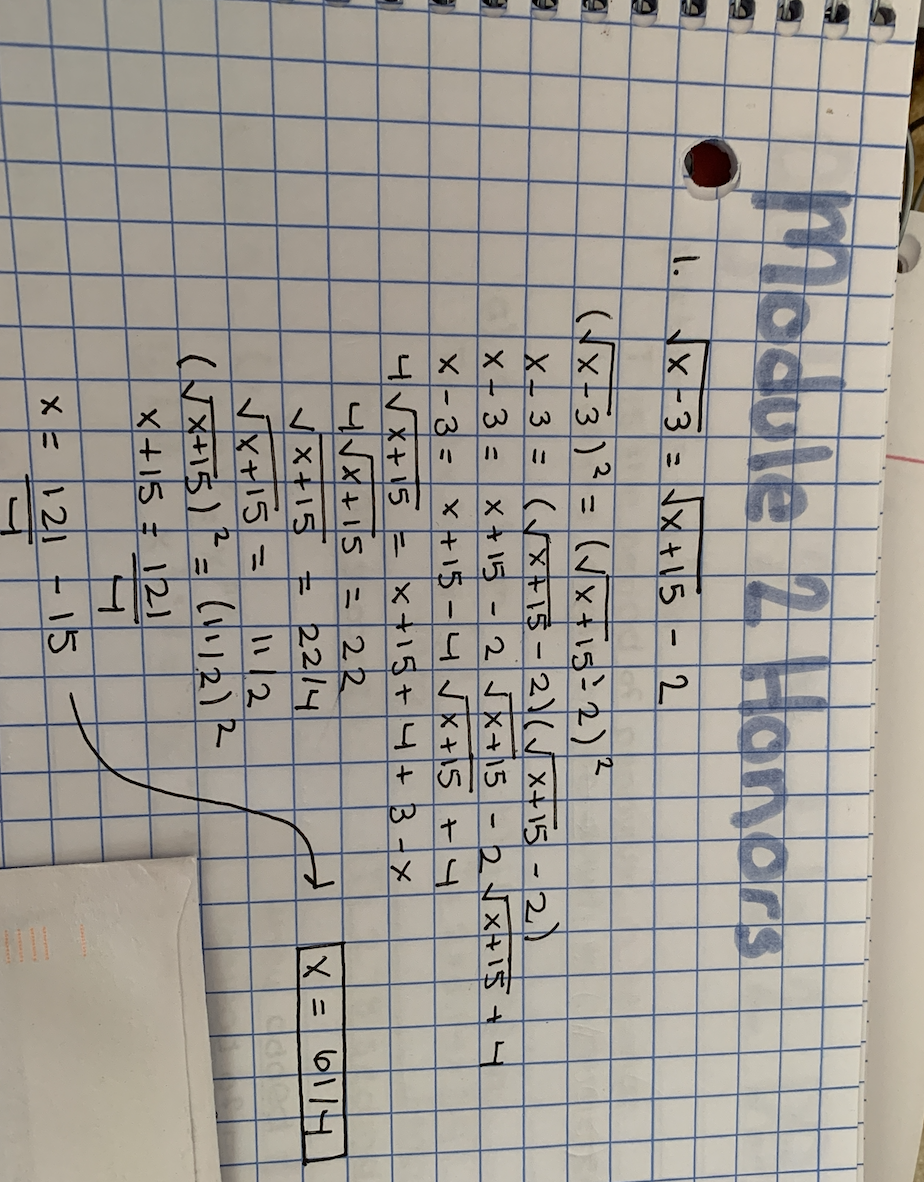 Module 2 Honors
1. √x-3 = √x+15 - 2
(√x-3)² = (√x+15 - 2)²
x-3 = (√x+15 - 2)(√x+15 - 2)
x-3 = x+15 - 2√x+15 - 2√x+15 + 4
x-3 = x+15 - 4√x+15 + 4
4√x+15 = x+15+4+3-x
4√x+15 = 22
√x+15 = 22/4
√x+15 = 11/2
(√x+15)² = (11/2)²
x+15 = 121/4
x = 121/4 - 15
x = 61/4